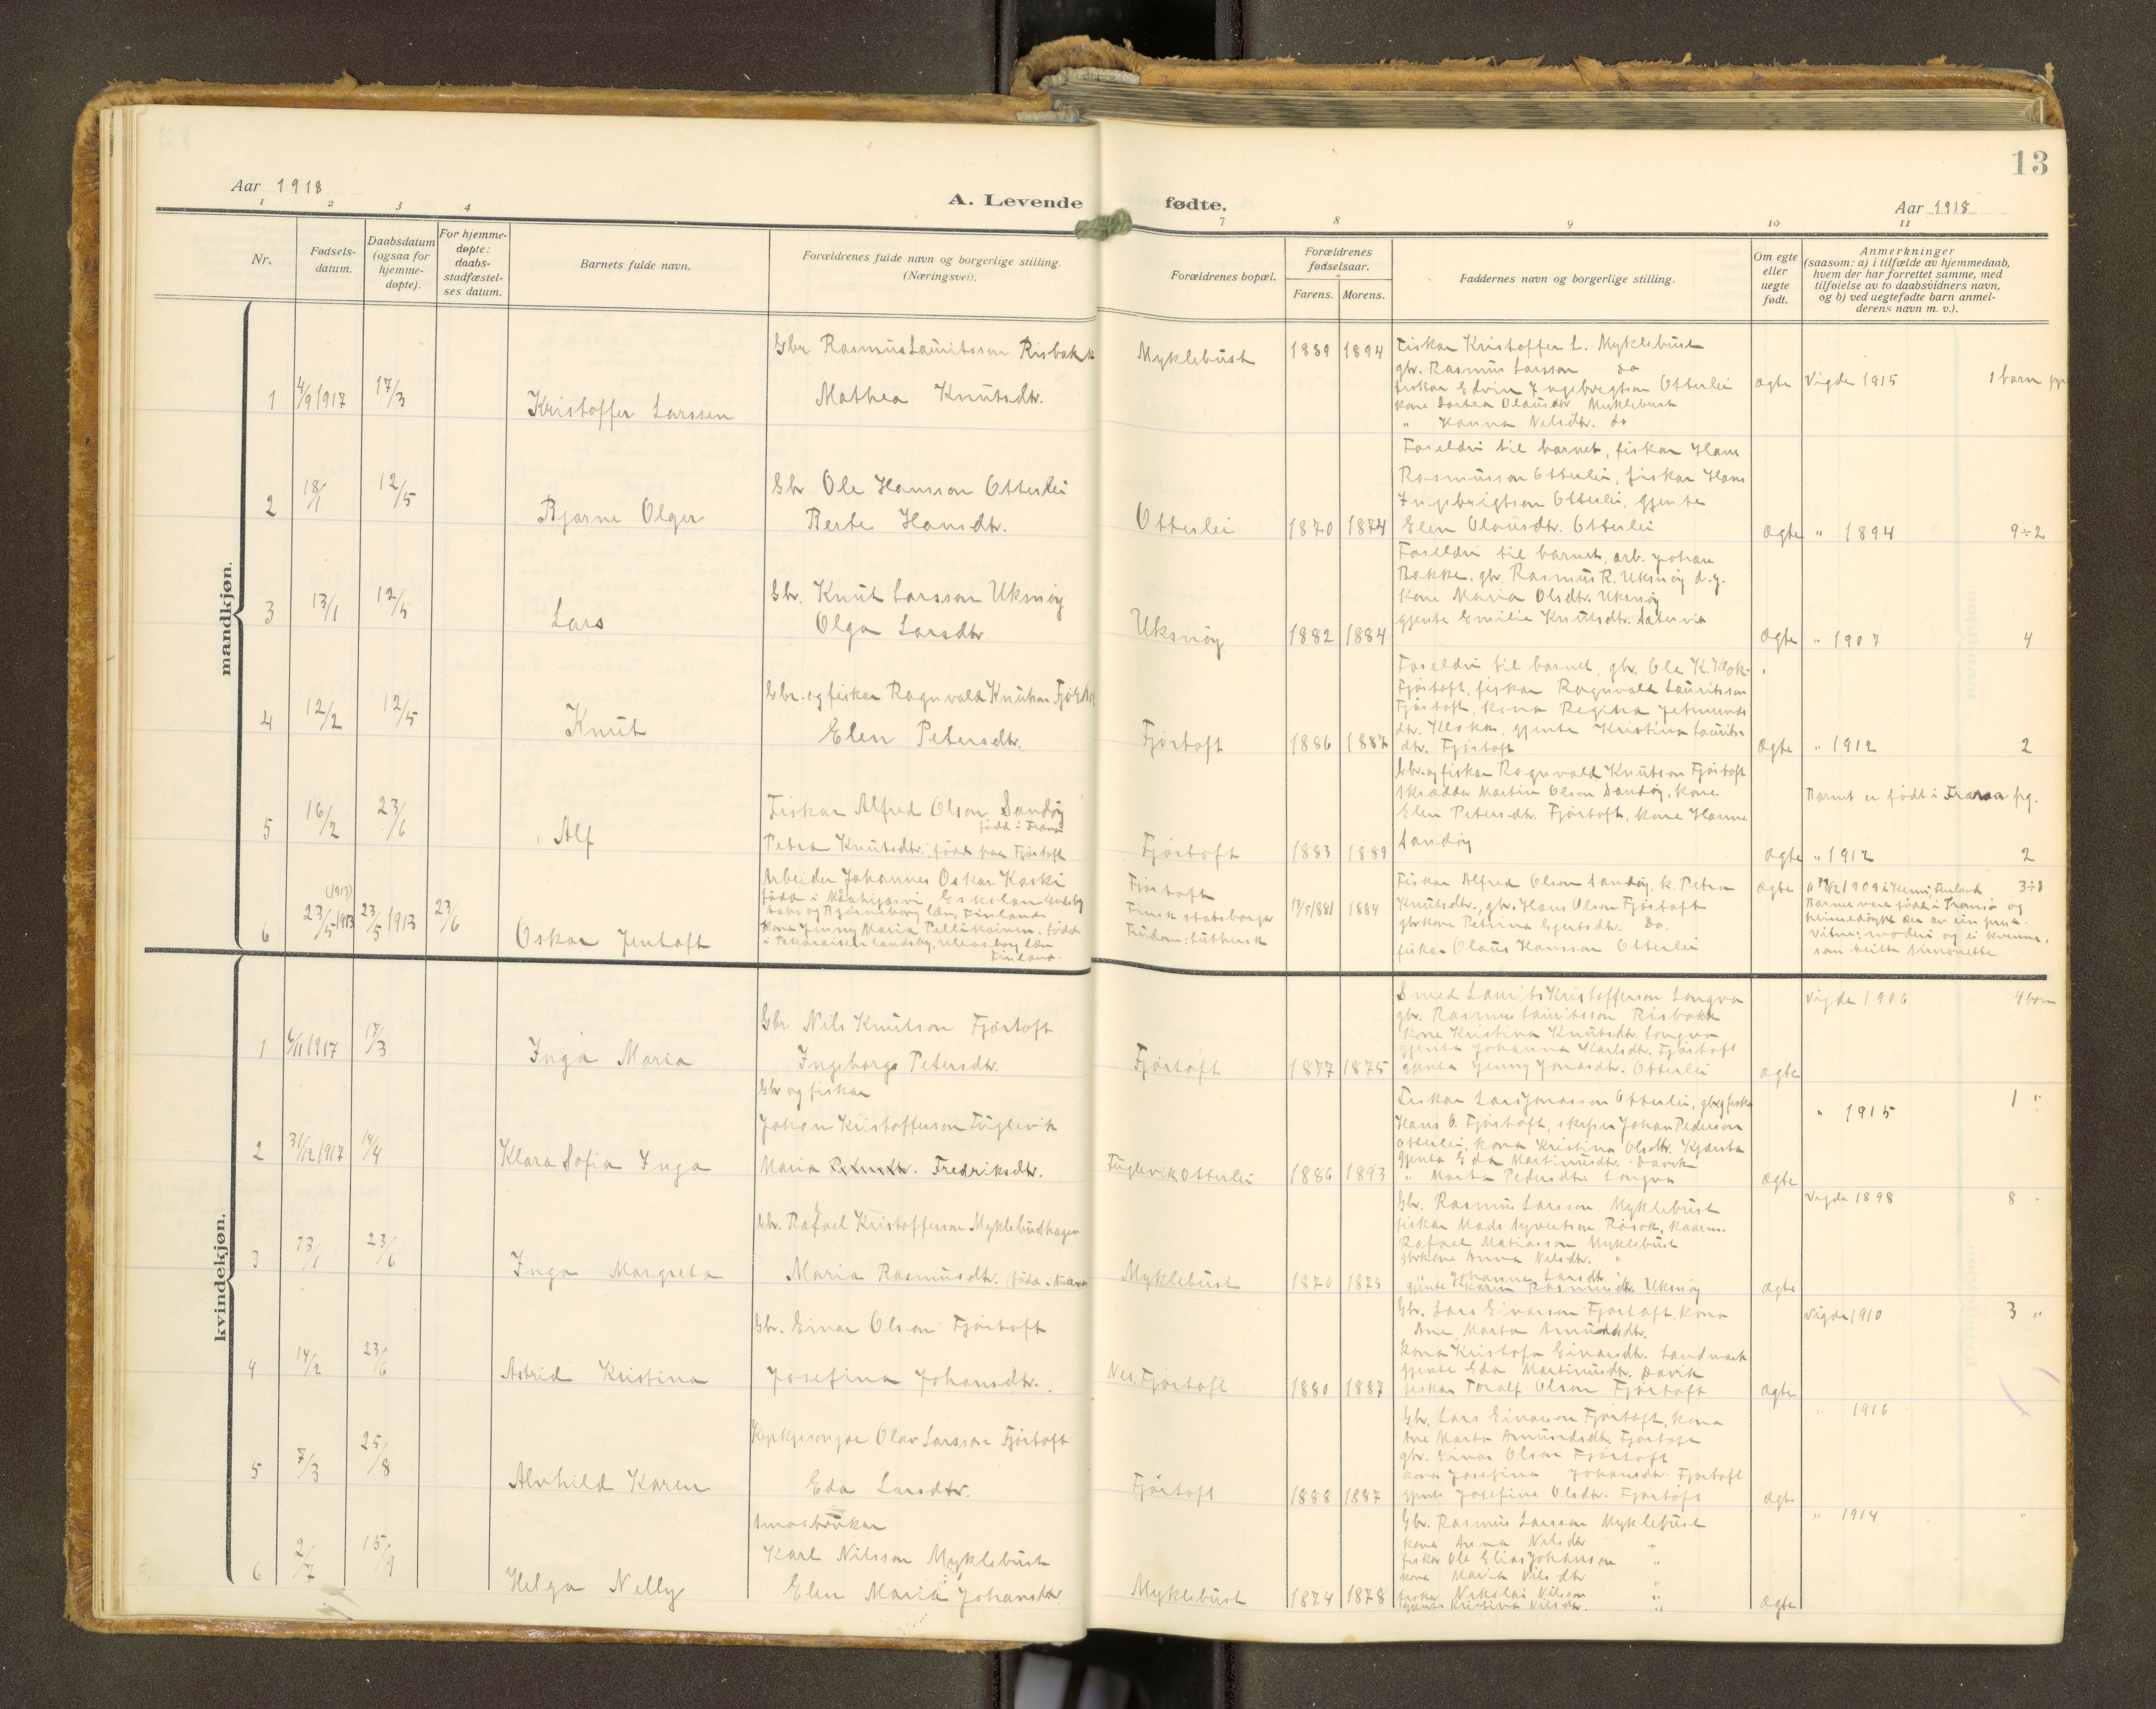 13
Aar 1918
A. Levende fødte.
Aar 1918
1 2 3 4 7 8 9 10 11
Nr.
Fødsels-
datum.
Daabsdatum
(ogsaa for
hjemme-
døpte).
For hjemme-
døpte:
daabs-
stadfæstel-
ses datum.
Barnets fulde navn.
Forældrenes fulde navn og borgerlige stilling.
(Næringsvei).
Forældrenes bopæl.
Forældrenes
fødselsaar.
Farens. Morens.
Faddernes navn og borgerlige stilling.
Om egte
eller
uegte
født.
Anmerkninger
(saasom: a) i tilfælde av hjemmedaab,
hvem der har forrettet samme, med
tilføielse av to daabsvidners navn,
og b) ved uegtefødte barn anmel-
derens navn m. v.).
mandkjøn.
1 4/9 1917 17/3 Kristoffer Larssen
Gbr Rasmus Lauritsson Risbakk
Mathea Knutsdtr.
Myklebust 1889 1894
Fiskar Kristoffer L. Myklebust
gbr. Rasmus Larsson do
fiskar Edvin Ingebrigtson Otterlei
kone Dortea Olausdtr Myklebust
" Hanna Nilsdtr. do
ægte Vigde 1915 1 barn
2 18/1 12/5 Bjarne Olger
Gbr Ole Hansson Otterlei
Berte Hansdtr.
Otterlei 1870 1874
Foreldri til barnet, fiskar Hans
Rasmusson Otterlei, fiskar Hans
Ingebrigtson Otterlei, gjente
Elen Olausdtr. Otterlei
ægte " 1894 9÷2
3 13/1 12/5 Lars
Gbr. Knut Larsson Uksnøy
Olga Larsdtr.
Uksnøy 1882 1884
Foreldri til barnet, arb. Johan
Bakke, gbr. Rasmus R. Uksnøy d.y.
kone Maria Olsdtr. Uksnøy
gjente Emilie Knutsdtr.
ægte " 1907 4
4 12/2 12/5 Knut
Gbr. og fiskar Ragnvald Knutson Fjørtoft
Elen Petersdtr.
Fjørtoft 1886 1887
Foreldri til barnet, gbr. Ole K. Klok-
Fjørtoft, fiskar Ragnvald Lauritsson
Fjørtoft, kona Regina Jetmunds
dtr. gjente Kristina Laurits-
dtr. Fjørtoft
ægte " 1912 2
5 16/2 23/6 Alf
Fiskar Alfred Olson Sandøy
født i Fræna
Petra Knutsdtr. født paa Fjørtoft
Fjørtoft 1883 1889
Gbr. og fiskar Ragnvald Knutson Fjørtoft
skrædder Martin Olson Sandøy, kone
Elen Petersdtr. Fjørtoft, kone Hanne
Sandøy
Barnet er født i Fræna pg.
ægte " 1912 2
6 (1913) 23/5 1913 23/5 1913 23/6 Oskar Jentoft
Arbeider Johannes Oskar Koski
født i Eskolan landsby
Aabo og Bjørneborg læn, Finland
Kona Jenny Maria Pellikainen. født
i landsby, Uleaaborg læn
Finland.
Fjørtoft
Finsk statsborgar
Trudom: luthersk
13/5 1881 1884
Fiskar Alfred Olson Sandøy, k. Petra
Knutsdtr., gbr. Hans Olson Fjørtoft
gbrkone Petrina Egertsdtr. Do.
fiskar Olaus Hansson Otterlei
ægte 1909 i Kemi Finland 3÷1
Barnet vart født i Tromsø og
heimedøypt der av ein prest.
Vitne: moderi og ei kvinne,
som heitte Simonette
kvindekjøn.
1 6/11 1917 17/3 Inga Maria
Gbr Nils Knutson Fjørtoft
Ingeborg Petersdtr.
Fjørtoft 1877 1875
Smed Laurits Kristofferson Longva
gbr. Rasmus Lauritsson Risbakk
kone Kristina Knutsdtr. Longva
gjenta Johanna Karlsdtr. Fjørtoft
gjenta Jenny Jonasdtr. Otterlei
ægte Vigde 1906 4 born
2 31/12 1917 14/4 Klara Sofia Inga
Gbr og fiskar
Johan Kristofferson Fuglevik
Maria Petersdtr. Fredriksdtr.
Fuglevik Otterlei 1886 1893
Fiskar Lars Jonasson Otterlei, gbr og fiskar
Hans O. Fjørtoft, skipsr Johan Pederson
Otterlei, kona Kristina Olsdtr.
gjenta Eda Martinusdtr. Davik
" Marta Pedersdtr. Longva
ægte " 1915 1 "
3 13/1 23/6 Inga Margreta
Gbr. Rafael Kristofferson Myklebusthagen
Maria Rasmusdtr.
Myklebust 1870 1875
Gbr. Rasmus Larsson Myklebust
fiskar Mads Syvertson Røsok,
Rafael Matiasson Myklebust
gbrkone Anna Nilsdtr. "
" Johanna Larsdtr. "
gjente Karin Rasmusdtr. Uksnøy
ægte Vigde 1898 8 "
4 14/2 23/6 Astrid Kristina
Gbr. Einar Olson Fjørtoft
Josefina Johansdtr.
Nes. Fjørtoft 1880 1887
Gbr. Lars Einarson Fjørtoft, kona
Ane Marta Amundsdtr.
kona Kristofa Einarsdtr. Landmark
gjente Eda Martinusdtr. Davik
fiskar Toralf Olson Fjørtoft
ægte Vigde 1910 3 "
5 7/3 25/8 Alvhild Karen
Kyrkjesongar Olav Larsson Fjørtoft
Eda Larsdtr.
Fjørtoft 1888 1887
Gbr. Lars Einarson Fjørtoft, kona
Ane Marta Amundsdtr. Fjørtoft
gbr. Einar Olson Fjørtoft
kona Josefina Johansdtr. Fjørtoft
gjente Josefine Olsdtr. Fjørtoft
ægte " 1916
6 2/7 15/9 Helga Nelly
Smaabrukar
Karl Nilsson Myklebust
Elen Maria Johansdtr
Myklebust 1874 1878
Gbr. Rasmus Larsson Myklebust
kona Anna Nilsdtr "
fiskar Ole Elias Johanson "
kona Maria Nilsdtr "
fiskar Nikolai Nilsson "
gjente Kristina Nilsdtr. "
ægte " 1914 "